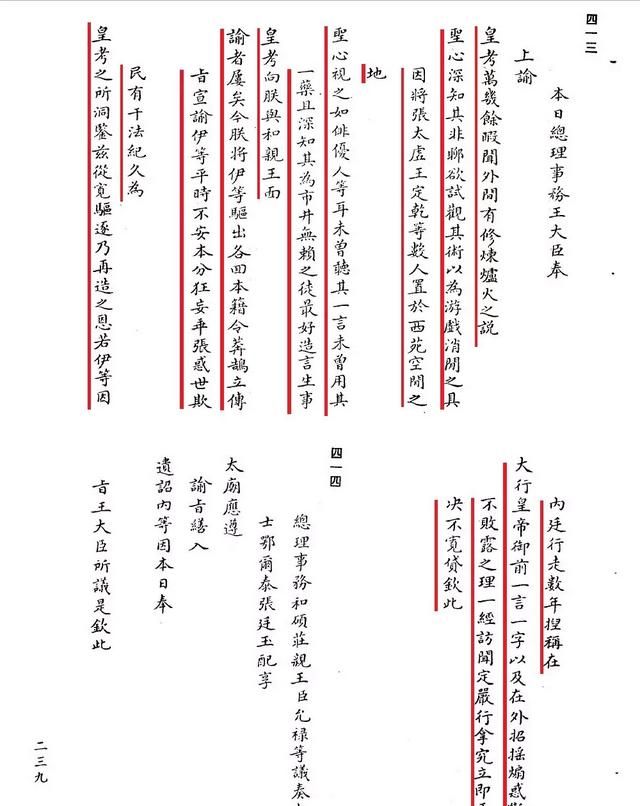 四一三
本日總理事務王大臣奉
上諭
皇考萬幾餘暇聞外間有修煉爐火之說
聖心深知其非聊欲試觀其術以為游戲消閒之具
因將張太虛王定乾等數人置於西苑空閒之
地
聖心視之如俳優人等耳未曾聽其一言未曾用其
一藥且深知其為市井無賴之徒最好造言生事
皇考向朕與和親王面
諭者屢矣今朕將伊等驅出各回本籍令莽鵠立傳
旨宣諭伊等平時不安本分狂妄乖張惑世欺
民有干法紀久為
皇考之所洞鑒茲從寬驅逐乃再造之恩若伊等因
內廷行走數年捏稱在
大行皇帝御前一言一字以及在外招搖煽惑
不敗露之理一經訪聞定嚴行拿究立即
決不寬貸欽此
四一四
總理事務和碩莊親王臣允祿等議奏
士鄂爾泰張廷玉配享
太廟應遵
諭旨繕入
遺詔內等因本日奉
旨王大臣所議是欽此
二三九